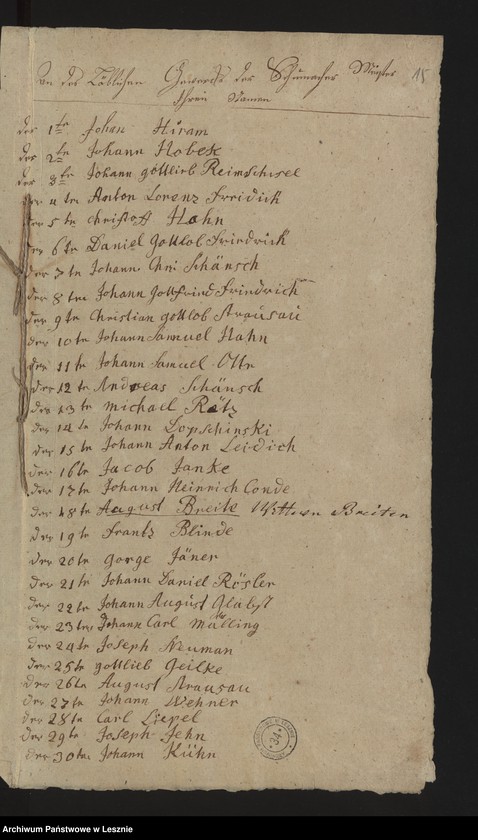 15
Von des Löblichen Gewercks der Schumacher Meister
Ihren Namen
der 1te Johan Hiram
der 2te Johann Hobek
der 3te Johann gottlieb Reimschisel
der 4te Anton Lorenz Freidick
der 5te Christoff Hahn
der 6te Daniel Gottlob Friedrick
der 7te Johann Chri Schänsch
der 8te Johann Gottfried Friedrich
der 9te Christian gottlob Strausau
der 10te Johann Samuel Hahn
der 11te Johann Samuel Otte
der 12te Andreas Schänsch
der 13te michael Rätz
der 14te Johann Lopschinski
der 15te Johann Anton Leidich
der 16te Jacob Janke
der 17te Johann Heinrich Conde
der 18te August Breite Wittwen Breiten
der 19te Frantz Blinde
der 20te gorge Jäner
der 21te Johann Daniel Rösler
der 22te Johann August
der 23te Johann Carl Mälling
der 24te Joseph Neuman
der 25te gottlieb Geilke
der 26te August Strausau
der 27te Johann Wehner
der 28te Carl Liepel
der 29te Joseph Jehn
der 30te Johann Kühn
34
Archiwum Państwowe w Lesznie